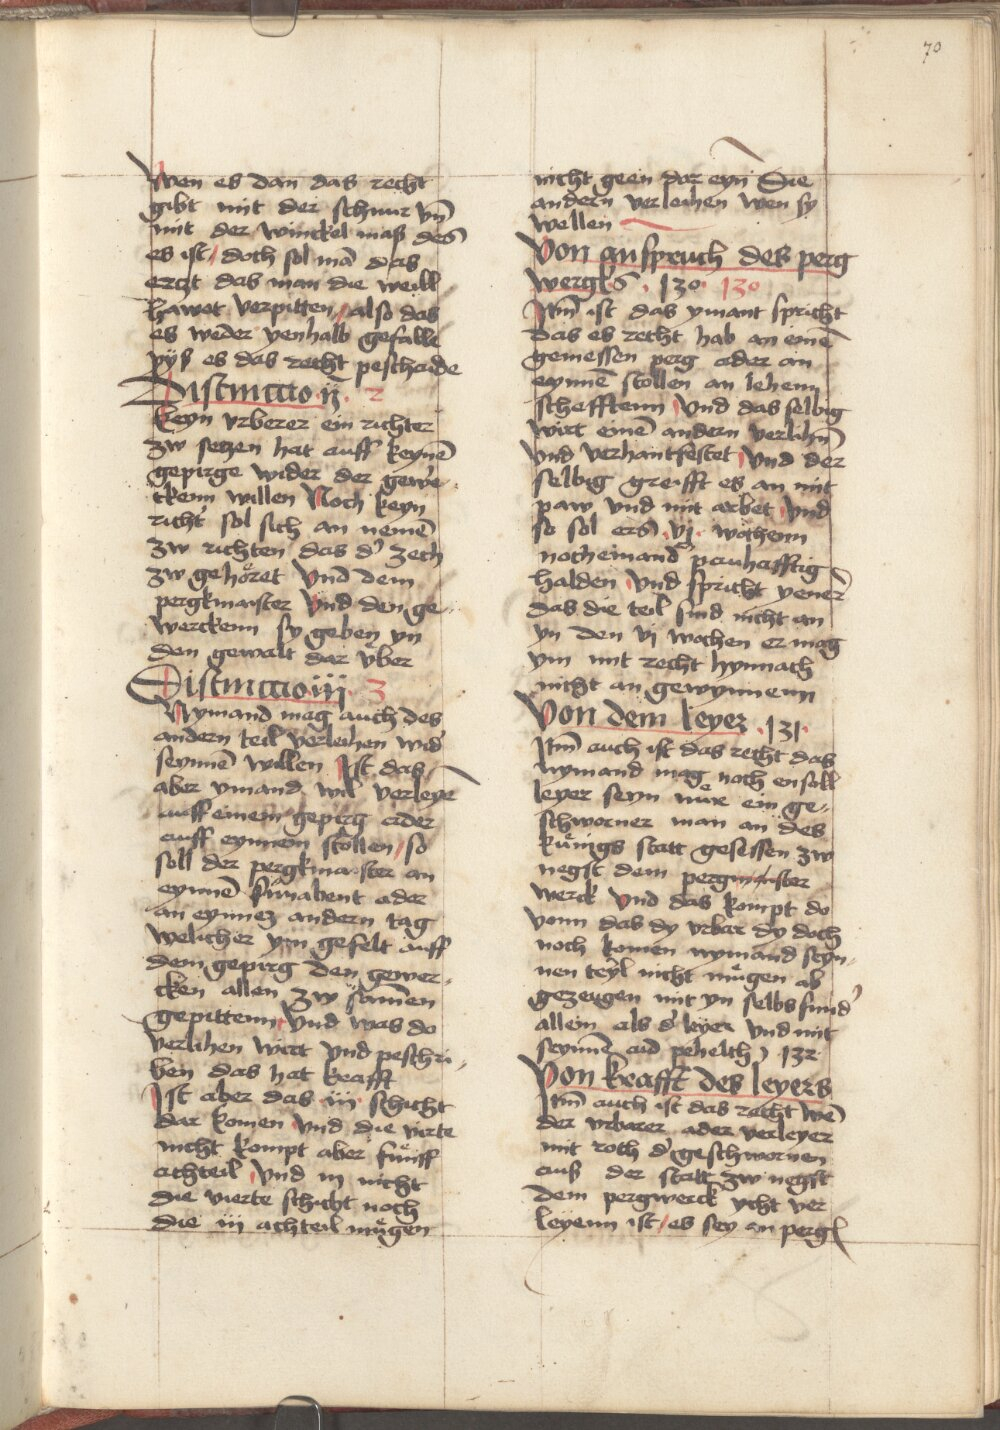 70
Wen es dan das recht
gibt mit der schnur vn̄
mit der winckel mas des
es ist / doch sol mā das
erczt das man die weill
hawet verpitten / also das
es weder yenhalb gefalle
pys es das recht peschaide
Distinctio ij. 2
Keyn vrberer ein richter
zw seczen hat auff keynē
gepirge wider der gewer
ckenn willen Noch keyn
richt' sol sich an nemē
zw richten das d' zech
zw gehöret Vnd dem
pergkmaister Vnd den ge
werckenn sy geben yn
den gewalt dar vber
Distinctio iij. 3
Nymand mag auch des
andern teil verleihen wid'
seynnē willen Ist das
aber ymand wil verleyē
auff einem gepirg oder
auff eynnem stollen / so
soll der pergkmaister an
eynnē sunabent oder
an eynnez andern tag
welicher ym gefelt auff
dem gepirg den gewer-
cken allen zw samen
gepittenn Vnd was do
verlihen wirt Vnd peschri-
ben das hat krafft
Ist aber das iij schicht
dar komen Vnd die virte
nicht kompt aber fünff
achteil Vnd iij nicht
die vierte schicht noch
die iij achteil mügen
nicht geen dar eyn Die
andern verleihen wen sy
wellen
Von anspruch des perg
wergks . 130 . 130
Itm̄ ist das ymant spricht
das es recht hab an einē
gemessen perg oder an
eynnē stollen an lehenn
schefftenn Vnd das selbig
wirt einē andern verlihn̄
Vnd verhantfestet Vnd der
selbig greifft es an mit
paw Vnd mit arbet Vnd
so sol ers vj wochenn
nocheinand' pauhafftig
halden Vnd spricht yener
das die teil sind nicht an
yn den vj wochen er mag
ym mit recht hynnach
nicht an gewynnenn
Von dem leyer . 131 .
Itm̄ auch ist das recht das
nymand mag noch ensoll
leyer seyn nüre ein ge-
schworner man an des
künigs statt gesessen zw
negst dem pergmaister
werck Vnd das kompt do
vonn das dy vrbar dy doch
noch komen nymand seyn-
nen teyl nicht mügen ab
gezeugen mit yn selbs sund'
allein als d' leyer Vnd mit
seynnē aid pehelth 132
Von krafft des leyers
Itm̄ auch ist das recht wē
der vrbarer ader verleyer
mit roth d' geschwornen
aus der statt zw negst
dem pergwerck ycht ver
leyenn ist / es sey an pergk